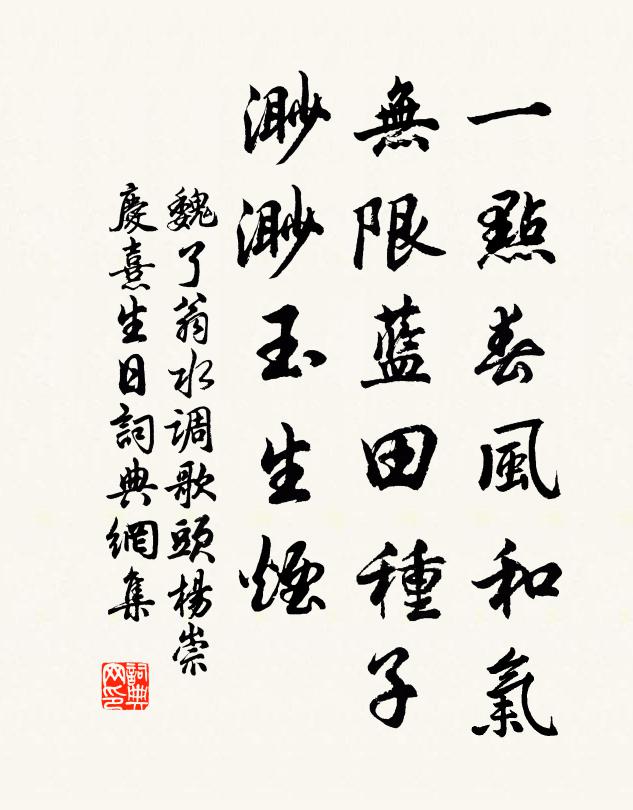 一點春風和氣
無限藍田種子
渺渺玉生煙
魏了翁水调歌頭楊崇
慶熹生日詞典網集
詞典网印